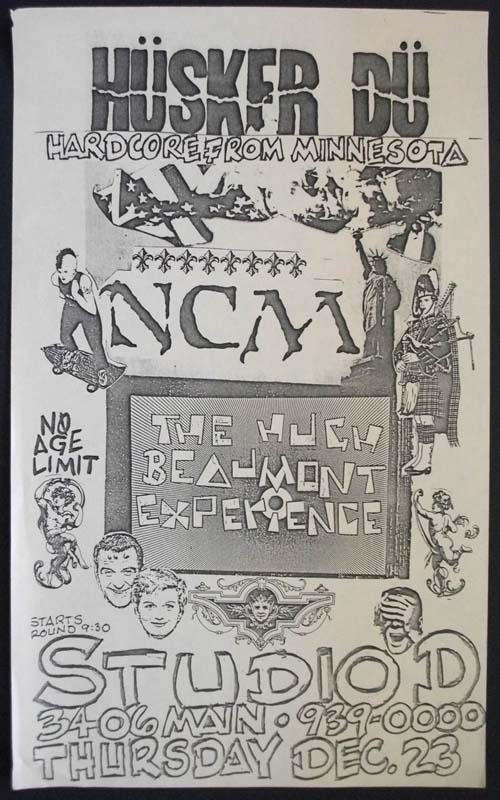 HÜSKER DÜ
HARDCORE FROM MINNESOTA
NCM
THE HUGH
BEAUMONT
EXPERIENCE
NO
AGE
LIMIT
STARTS
ROUND 9:30
STUDIO D
3406 MAIN • 939-0000
THURSDAY DEC. 23